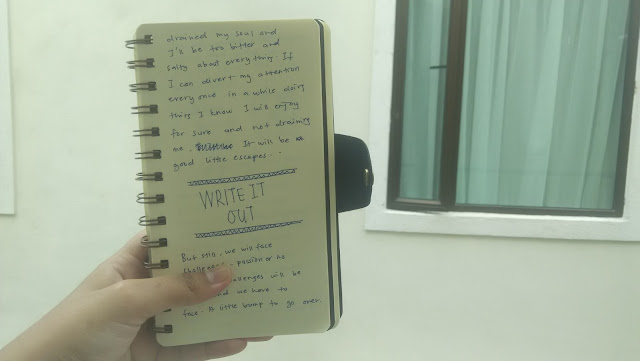 drained my soul and
I'll be too bitter and
salty about everything. If
I can divert my attention
every once in a while doing
things I know I will enjoy
for sure and not draining
me. It will be
good little escapes...
WRITE IT
OUT
But still, we will face
passion or no
challenges will be
we have to
face. A little bump to go over.